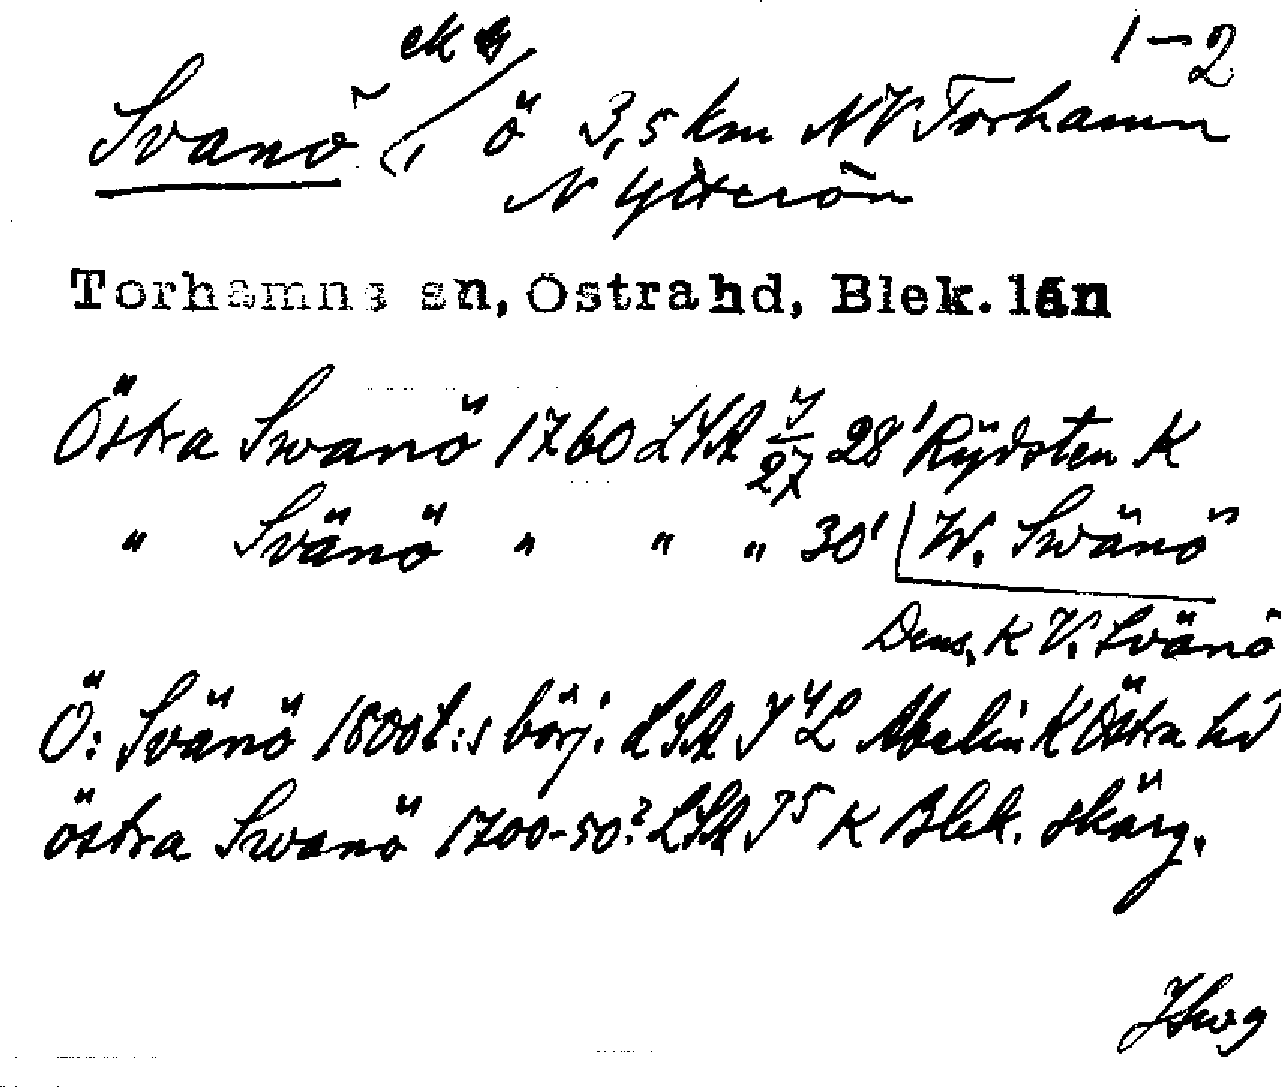 ek 1-2
Svanö, ö 3,5 km NV Torhamn
N Ytterön
Torhamns sn, Östra hd, Blek. län
Östra Swanö 1760 LSA 7/27 28' Rydsten K
" Svänö " " " 30' W. Swänö
Dens. K V. Svänö
Ö: Svänö 1800t:s börj. LSA Abelin K Östra hd
östra Swanö 1700-50? LSA J5 K Blek. skärg.